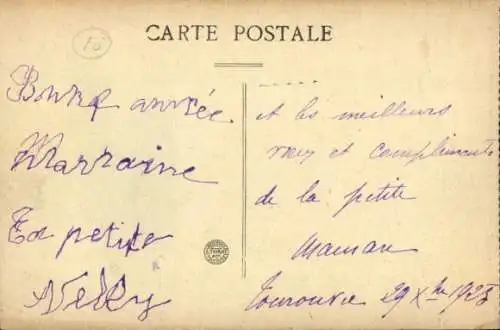 CARTE POSTALE
Bonne année
Marraine
Ta petite
Nelly
et les meilleurs
vœux et compliments
de la petite
maman
Tourouvre 29 Xbre 1925